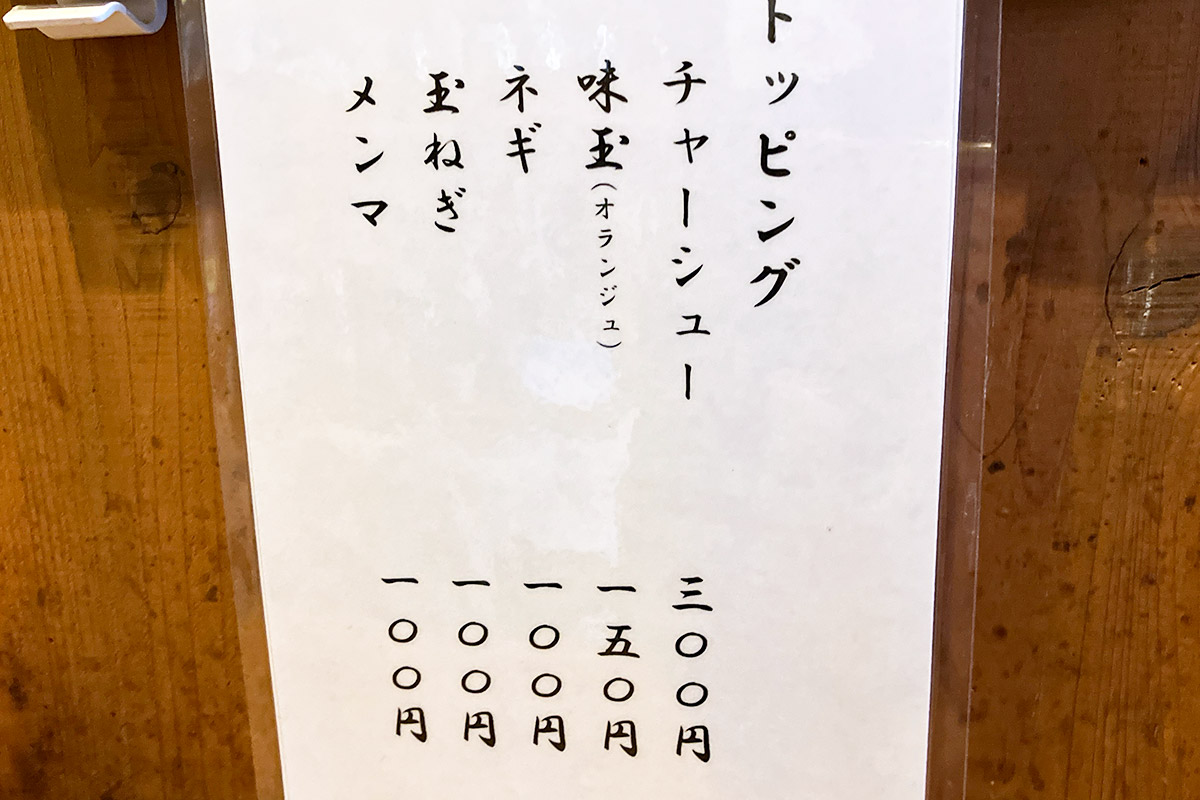 トッピング
チャーシュー 三〇〇円
味玉(オランジュ) 一五〇円
ネギ 一〇〇円
玉ねぎ 一〇〇円
メンマ 一〇〇円